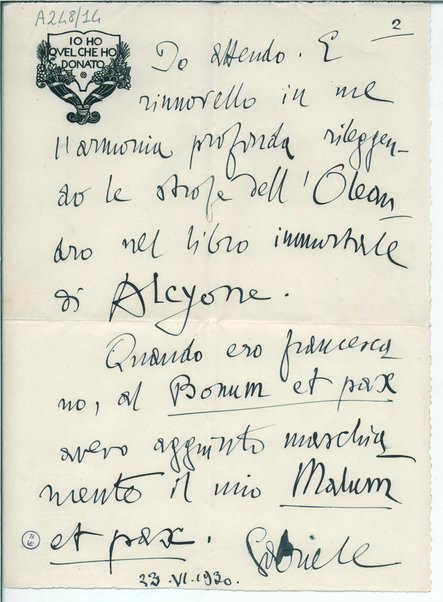 A248/14
2
IO HO
QVEL CHE HO
DONATO
Io attendo. E
rinnovello in me
l'armonia profonda rileggen-
do le strofe dell'Olean
dro nel libro immortale
di Alcyone.
Quando ero francesca
no, al Bonum et pax
avevo aggiunto maschia
mente il mio Malum
et pax.
Gabriele
23.VI.1930.